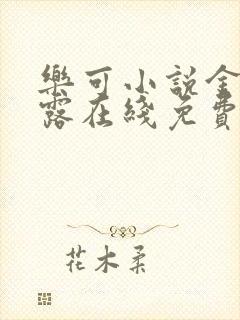 樂可小說金
露在綫免費
花木柔